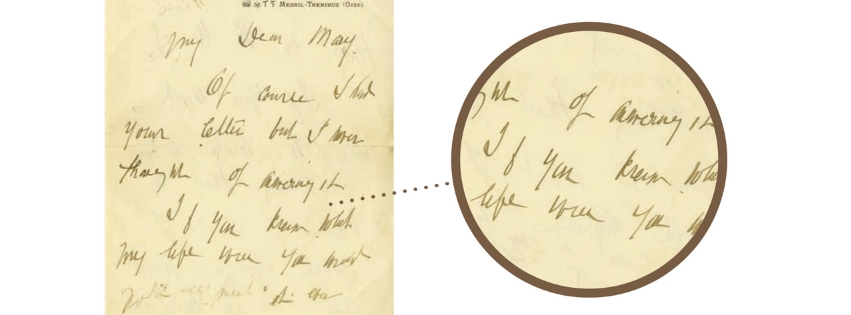 T F MESNIL-THERIBUS (OISE)
My Dear May.
Of course I had
your letter but I never
thought of answering it
If you knew what
my life was you
ght of answering it
If you knew wha
life was you w